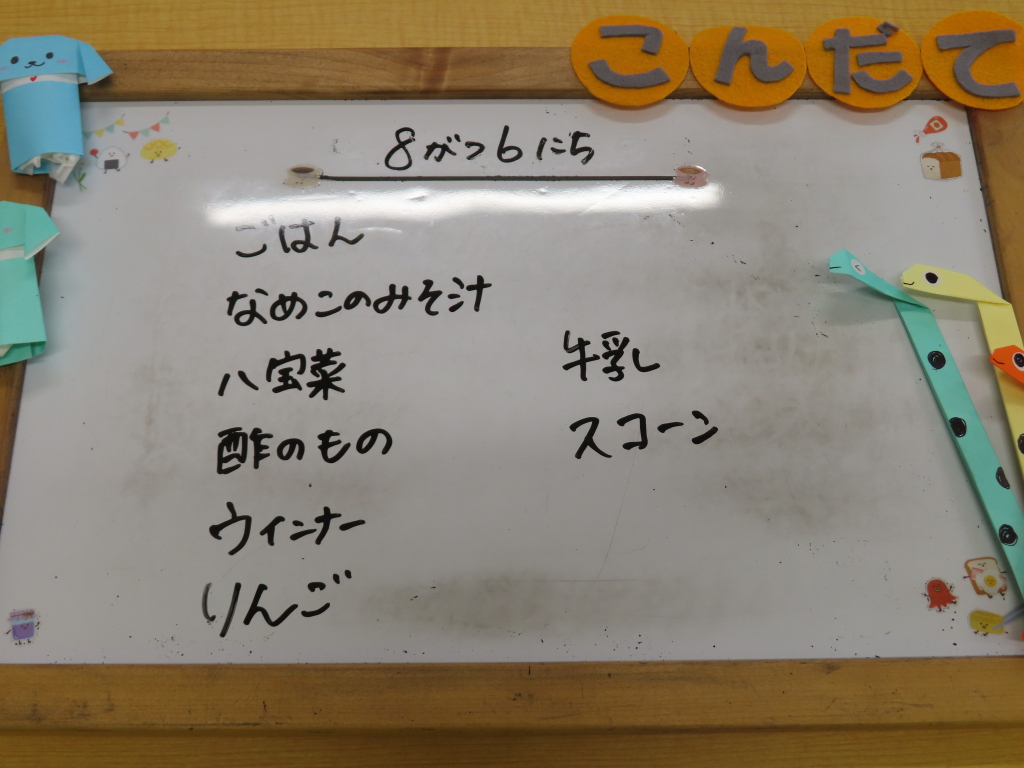 こんだて
8がつ6にち
ごはん
なめこのみそ汁
八宝菜
酢のもの
ウィンナー
りんご
牛乳
スコーン